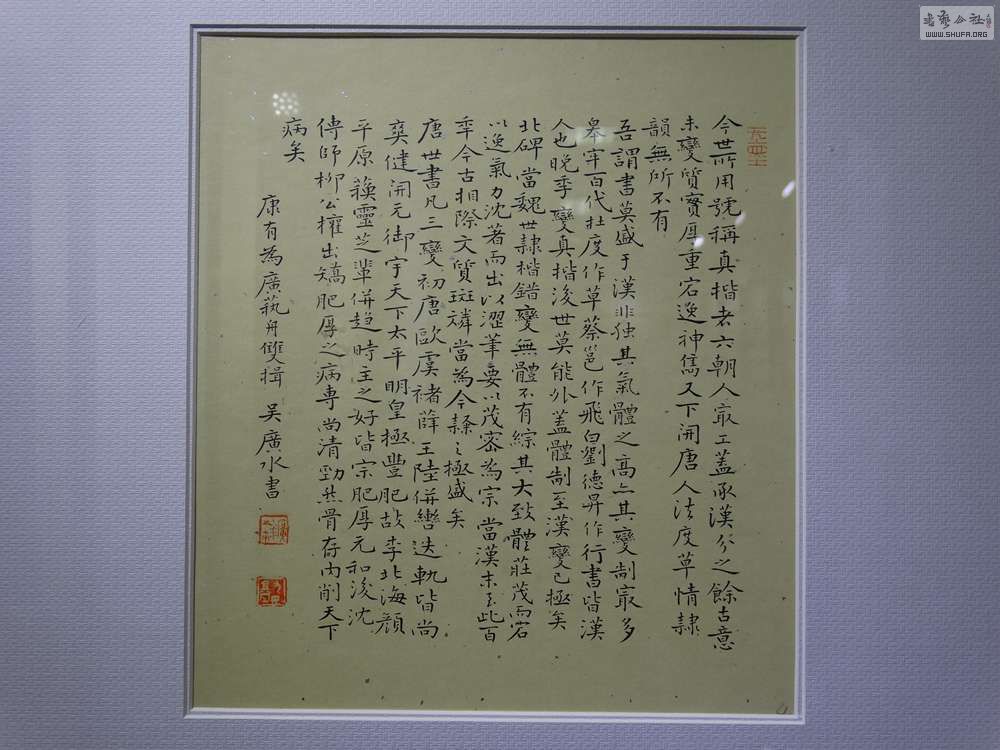 今世所用號稱真楷者六朝人最工蓋承漢分之餘古意
未變質實厚重宕逸神雋又下開唐人法度草情隸
韻無所不有
吾謂書莫盛于漢非独其氣體之高亦其變制最多
皋牢百代杜度作草蔡邕作飛白劉德昇作行書皆漢
人也晚季變真楷後世莫能外蓋體制至漢變已極矣
北碑當魏世隸楷錯變無體不有綜其大致體莊茂而宕
以逸氣力沈著而出以澀筆要以茂密為宗當漢末至此百
年今古相際文質斑璘當為今隸之極盛矣
唐世書凡三變初唐歐虞褚薛王陸併轡迭軌皆尚
爽健開元御宇天下太平明皇極豐肥故李北海顏
平原蘇靈芝輩併趨時主之好皆宗肥厚元和後沈
傳師柳公權出矯肥厚之病專尚清勁然骨存肉削天下
病矣
康有為廣藝舟雙揖 吳廣水書
WWW.SHUFA.ORG